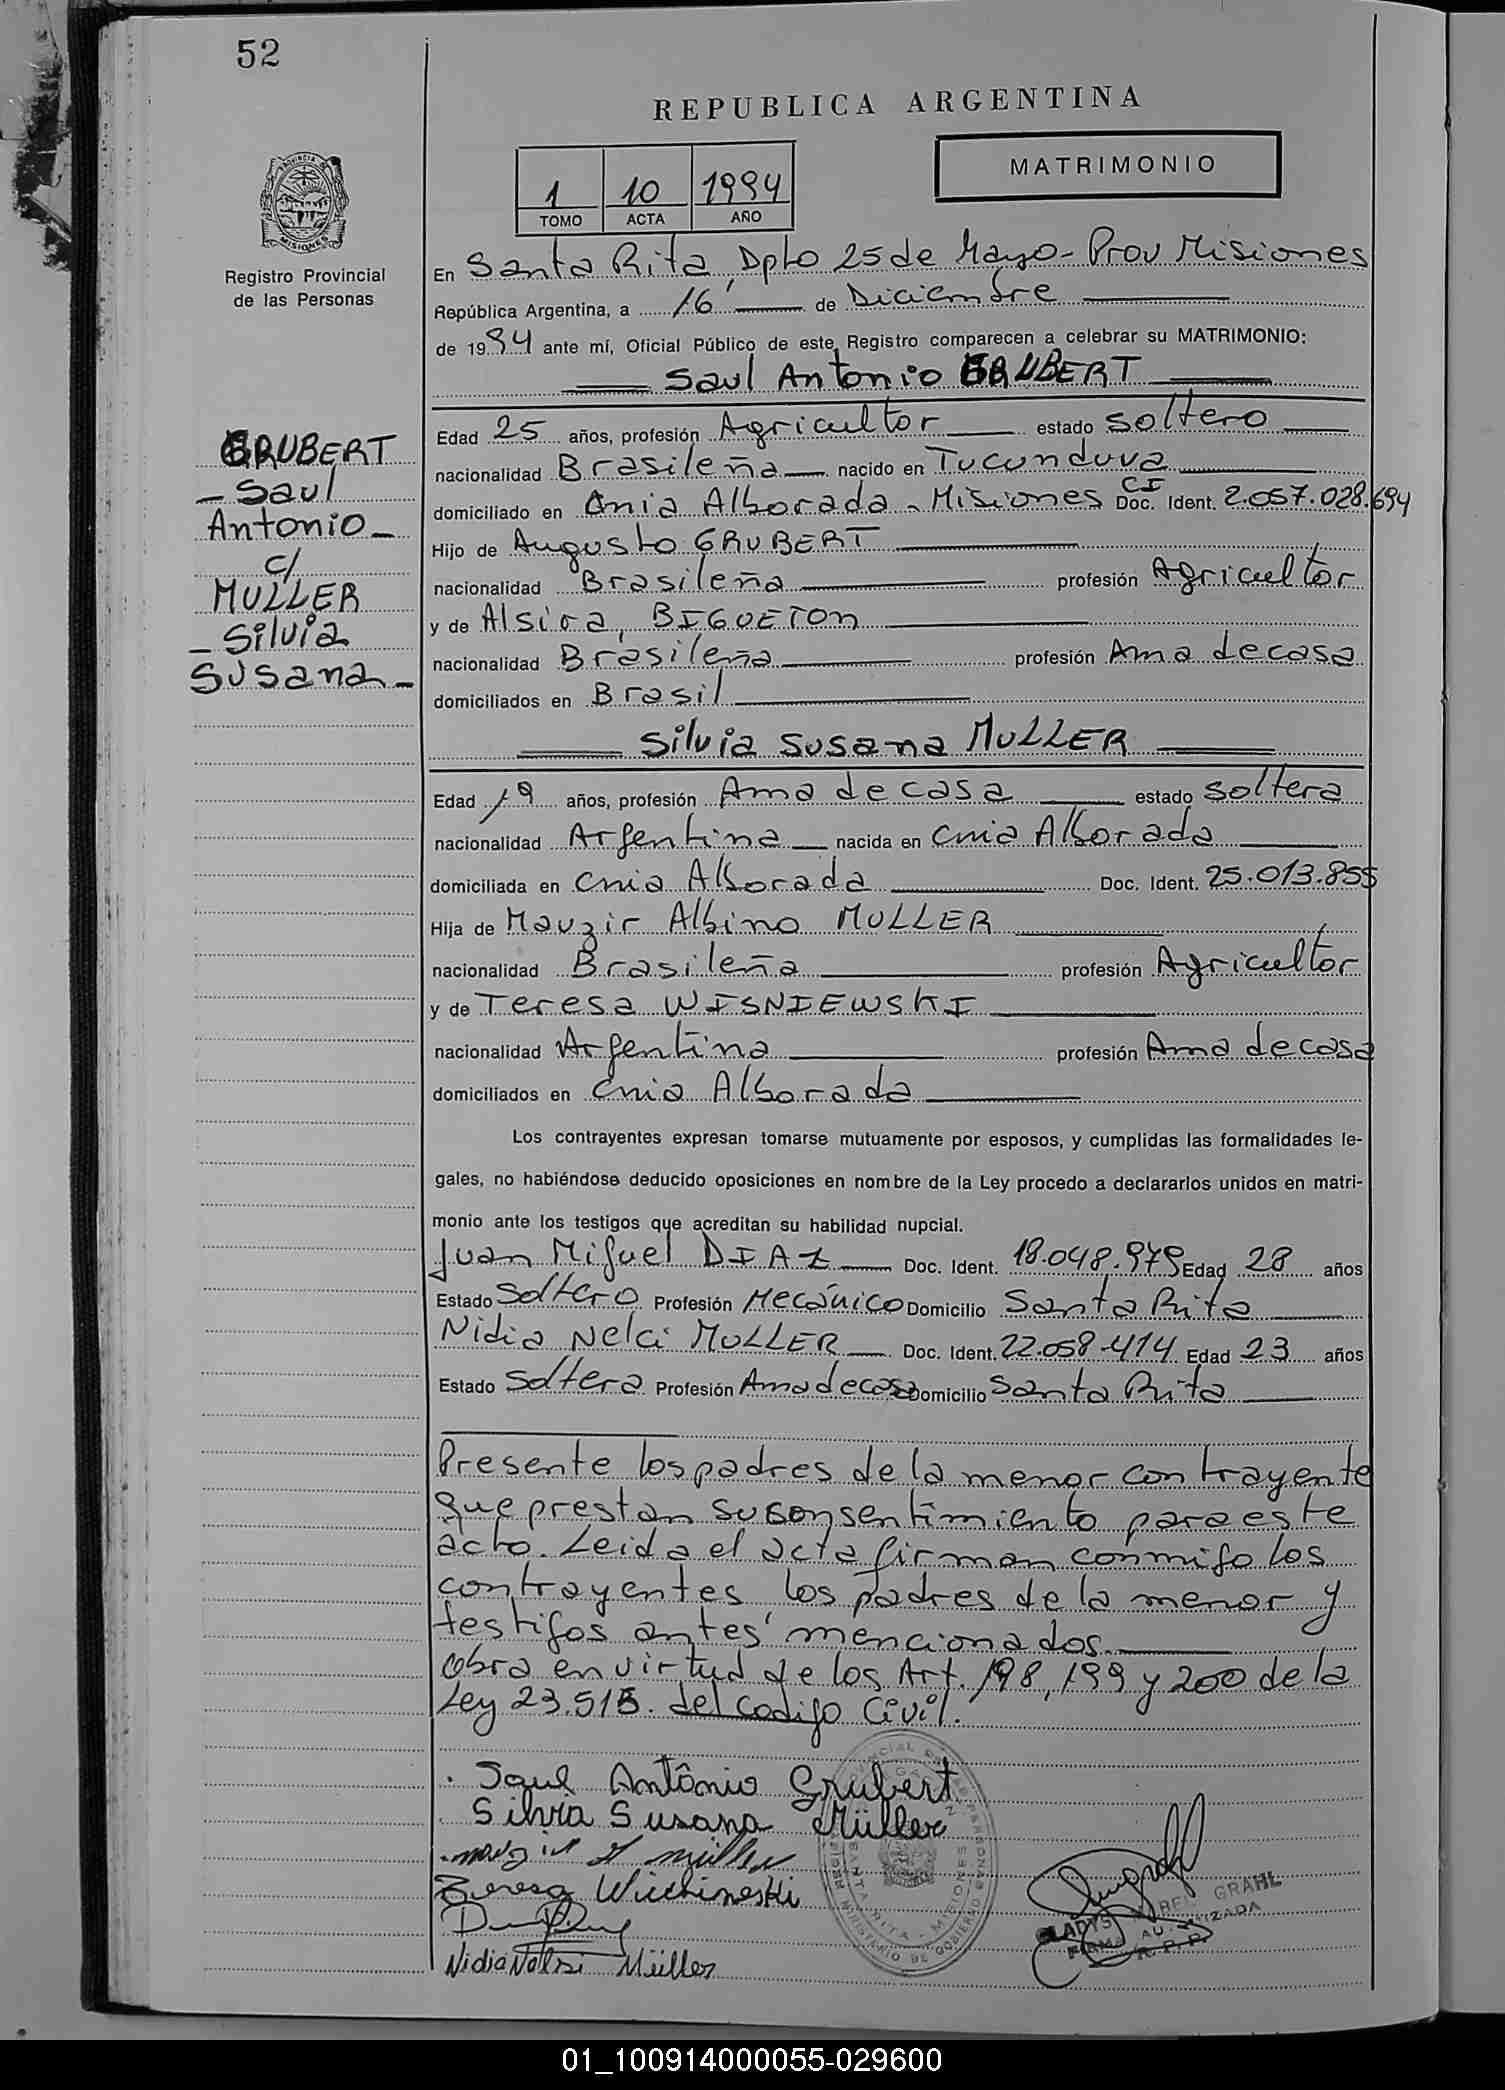 52
REPUBLICA ARGENTINA
MATRIMONIO
1 10 1994
TOMO ACTA AÑO
PROVINCIA DE
MISIONES
Registro Provincial
de las Personas
En Santa Rita, Dpto 25 de Mayo - Prov Misiones
República Argentina, a 16 de Diciembre
de 1994 ante mí, Oficial Público de este Registro comparecen a celebrar su MATRIMONIO:
Saul Antonio GRUBERT
GRUBERT
- Saul
Antonio -
c/
MULLER
- Silvia
Susana -
Edad 25 años, profesión Agricultor estado soltero
nacionalidad Brasileña nacido en Tucunduva
domiciliado en Cnia Alborada - Misiones CI Doc. Ident. 2.057.028.694
Hijo de Augusto GRUBERT
nacionalidad Brasileña profesión Agricultor
y de Alsira, BIGUETON
nacionalidad Brasileña profesión Ama de casa
domiciliados en Brasil
Silvia Susana MULLER
Edad 19 años, profesión Ama de casa estado soltera
nacionalidad Argentina nacida en Cnia Alborada
domiciliada en Cnia Alborada Doc. Ident. 25.013.855
Hija de Mauzir Albino MULLER
nacionalidad Brasileña profesión Agricultor
y de Teresa WISNIEWSKI
nacionalidad Argentina profesión Ama de casa
domiciliados en Cnia Alborada
Los contrayentes expresan tomarse mutuamente por esposos, y cumplidas las formalidades le-
gales, no habiéndose deducido oposiciones en nombre de la Ley procedo a declararlos unidos en matri-
monio ante los testigos que acreditan su habilidad nupcial.
Juan Miguel DIAZ Doc. Ident. 18.048.979 Edad 28 años
Estado Soltero Profesión Mecánico Domicilio Santa Rita
Nidia Nelci MULLER Doc. Ident. 22.058.414 Edad 23 años
Estado Soltera Profesión Ama de casa Domicilio Santa Rita
Presente los padres de la menor contrayente
que prestan su consentimiento para este
acto. Leida el acta firman conmigo los
contrayentes los padres de la menor y
testigos antes mencionados.
Obra en virtud de los Art. 198, 199 y 200 de la
Ley 23.515. del codigo Civil.
Saul Antônio Grubert
Silvia Susana Müller
müller
Nidia Müller
GLADYS GRAHL
FIRMA AUTORIZADA
R. P. P.
01_100914000055-029600